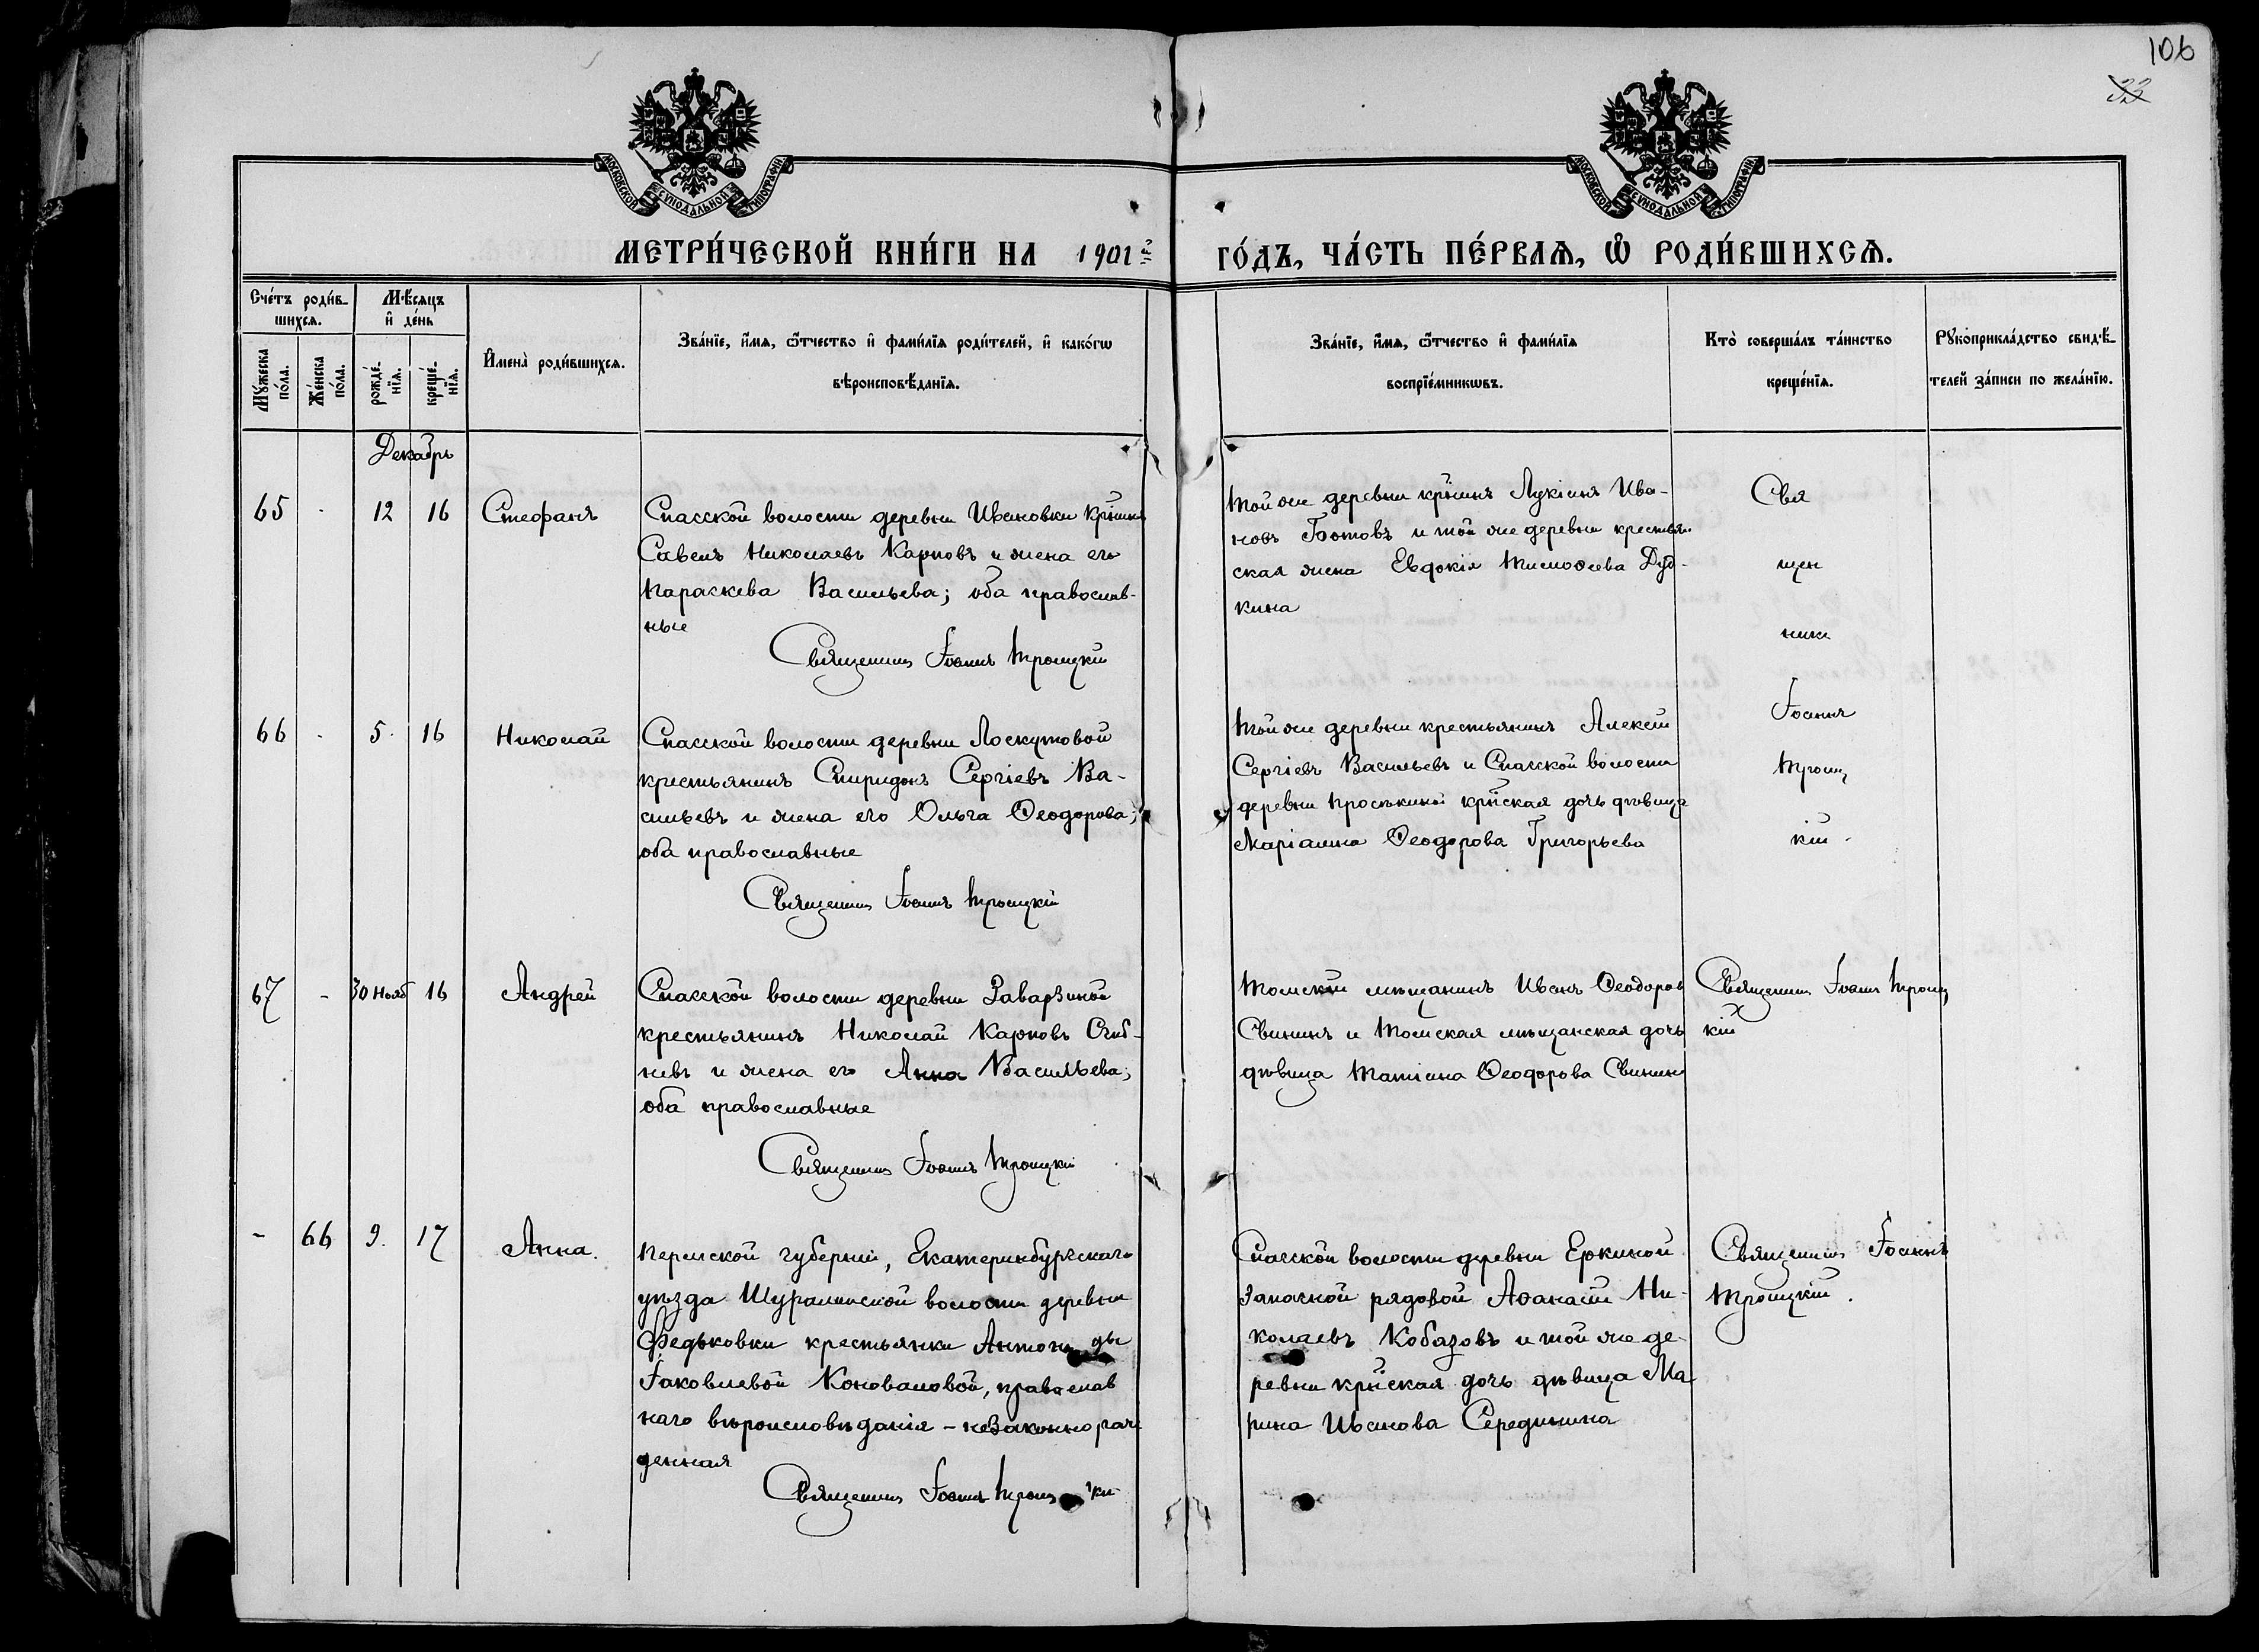 106
33
МОСКОВСКОЙ СѴНОДАЛЬНОЙ ТИПОГРАФІИ
МОСКОВСКОЙ СѴНОДАЛЬНОЙ ТИПОГРАФІИ
МЕТРИ́ЧЕСКОЙ КНИ́ГИ НА 1901 г ГО́ДЪ, ЧА́СТЬ ПЕ́РВАѦ, Ѡ҆ РОДИ́ВШИХСѦ.
Сче́тъ роди́в-
шихсѧ.
Мѣ́сяцъ
и҆ де́нь
Мꙋ́жеска
по́ла.
Же́нска
по́ла.
рожде́-
нїѧ.
креще́-
нїѧ.
И҆мена̀ роди́вшихсѧ.
Зва́нїе, и҆́мѧ, ѻ҆́тчество и҆ фами́лїѧ роди́телей, и҆ како́гѡ
вѣроисповѣ́данїѧ.
Зва́нїе, и҆́мѧ, ѻ҆́тчество и҆ фами́лїѧ
воспрїе́мникѡвъ.
Кто̀ соверша́лъ та́инство
креще́нїѧ.
Рꙋкоприкла́дство свидѣ́-
телей за́писи по жела́нїю.
Декабрь
65 - 12 16 Стефанъ
Спасской волости деревни Ивановки кр̃нинъ
Савелъ Николаевъ Карповъ и жена его
Параскева Васильева; оба православ-
ные
Священникъ Іоаннъ Троицкій
Той же деревни кр̃нинъ Лукіанъ Ива-
новъ Готовъ и той же деревни крестьян-
ская жена Евдокія Тимоѳеева Дуд-
кина
Свя
щен
никъ
66 - 5. 16 Николай
Спасской волости деревни Лоскутовой
крестьянинъ Спиридонъ Сергіевъ Ва-
сильевъ и жена его Ольга Ѳеодорова;
оба православные
Священникъ Іоаннъ Троицкій
Той же деревни крестьянинъ Алексій
Сергіевъ Васильевъ и Спасской волости
деревни Просѣкиной кр̃нская дочь дѣвица
Маріанна Ѳеодорова Григорьева
Іоаннъ
Троиц
кій.
67 - 30 Нояб 16 Андрей
Спасской волости деревни Заварзиной
крестьянинъ Николай Карповъ
невъ и жена его Анна Васильева;
оба православные
Священникъ Іоаннъ Троицкій
Томскій мѣщанинъ Иванъ Ѳеодоров
Свининъ и Томская мѣщанская дочь
дѣвица Татіана Ѳеодорова Свинина
Священникъ Іоаннъ Троиц
кій
- 66 9. 17 Анна.
Пермской губерніи, Екатеринбургскаго
уѣзда Шуралинской волости деревни
Федьковки крестьянки Антониды
Іаковлевой Коноваловой, православ
наго вѣроисповѣданія - незаконнорож
денная
Священникъ Іоаннъ Троицкій
Спасской волости деревни Еркиной
запасной рядовой Аѳанасій Ни-
колаевъ Кобазовъ и той же де-
ревни кр̃нская дочь дѣвица Ма
рина Иванова Середина
Священникъ Іоаннъ
Троицкій.